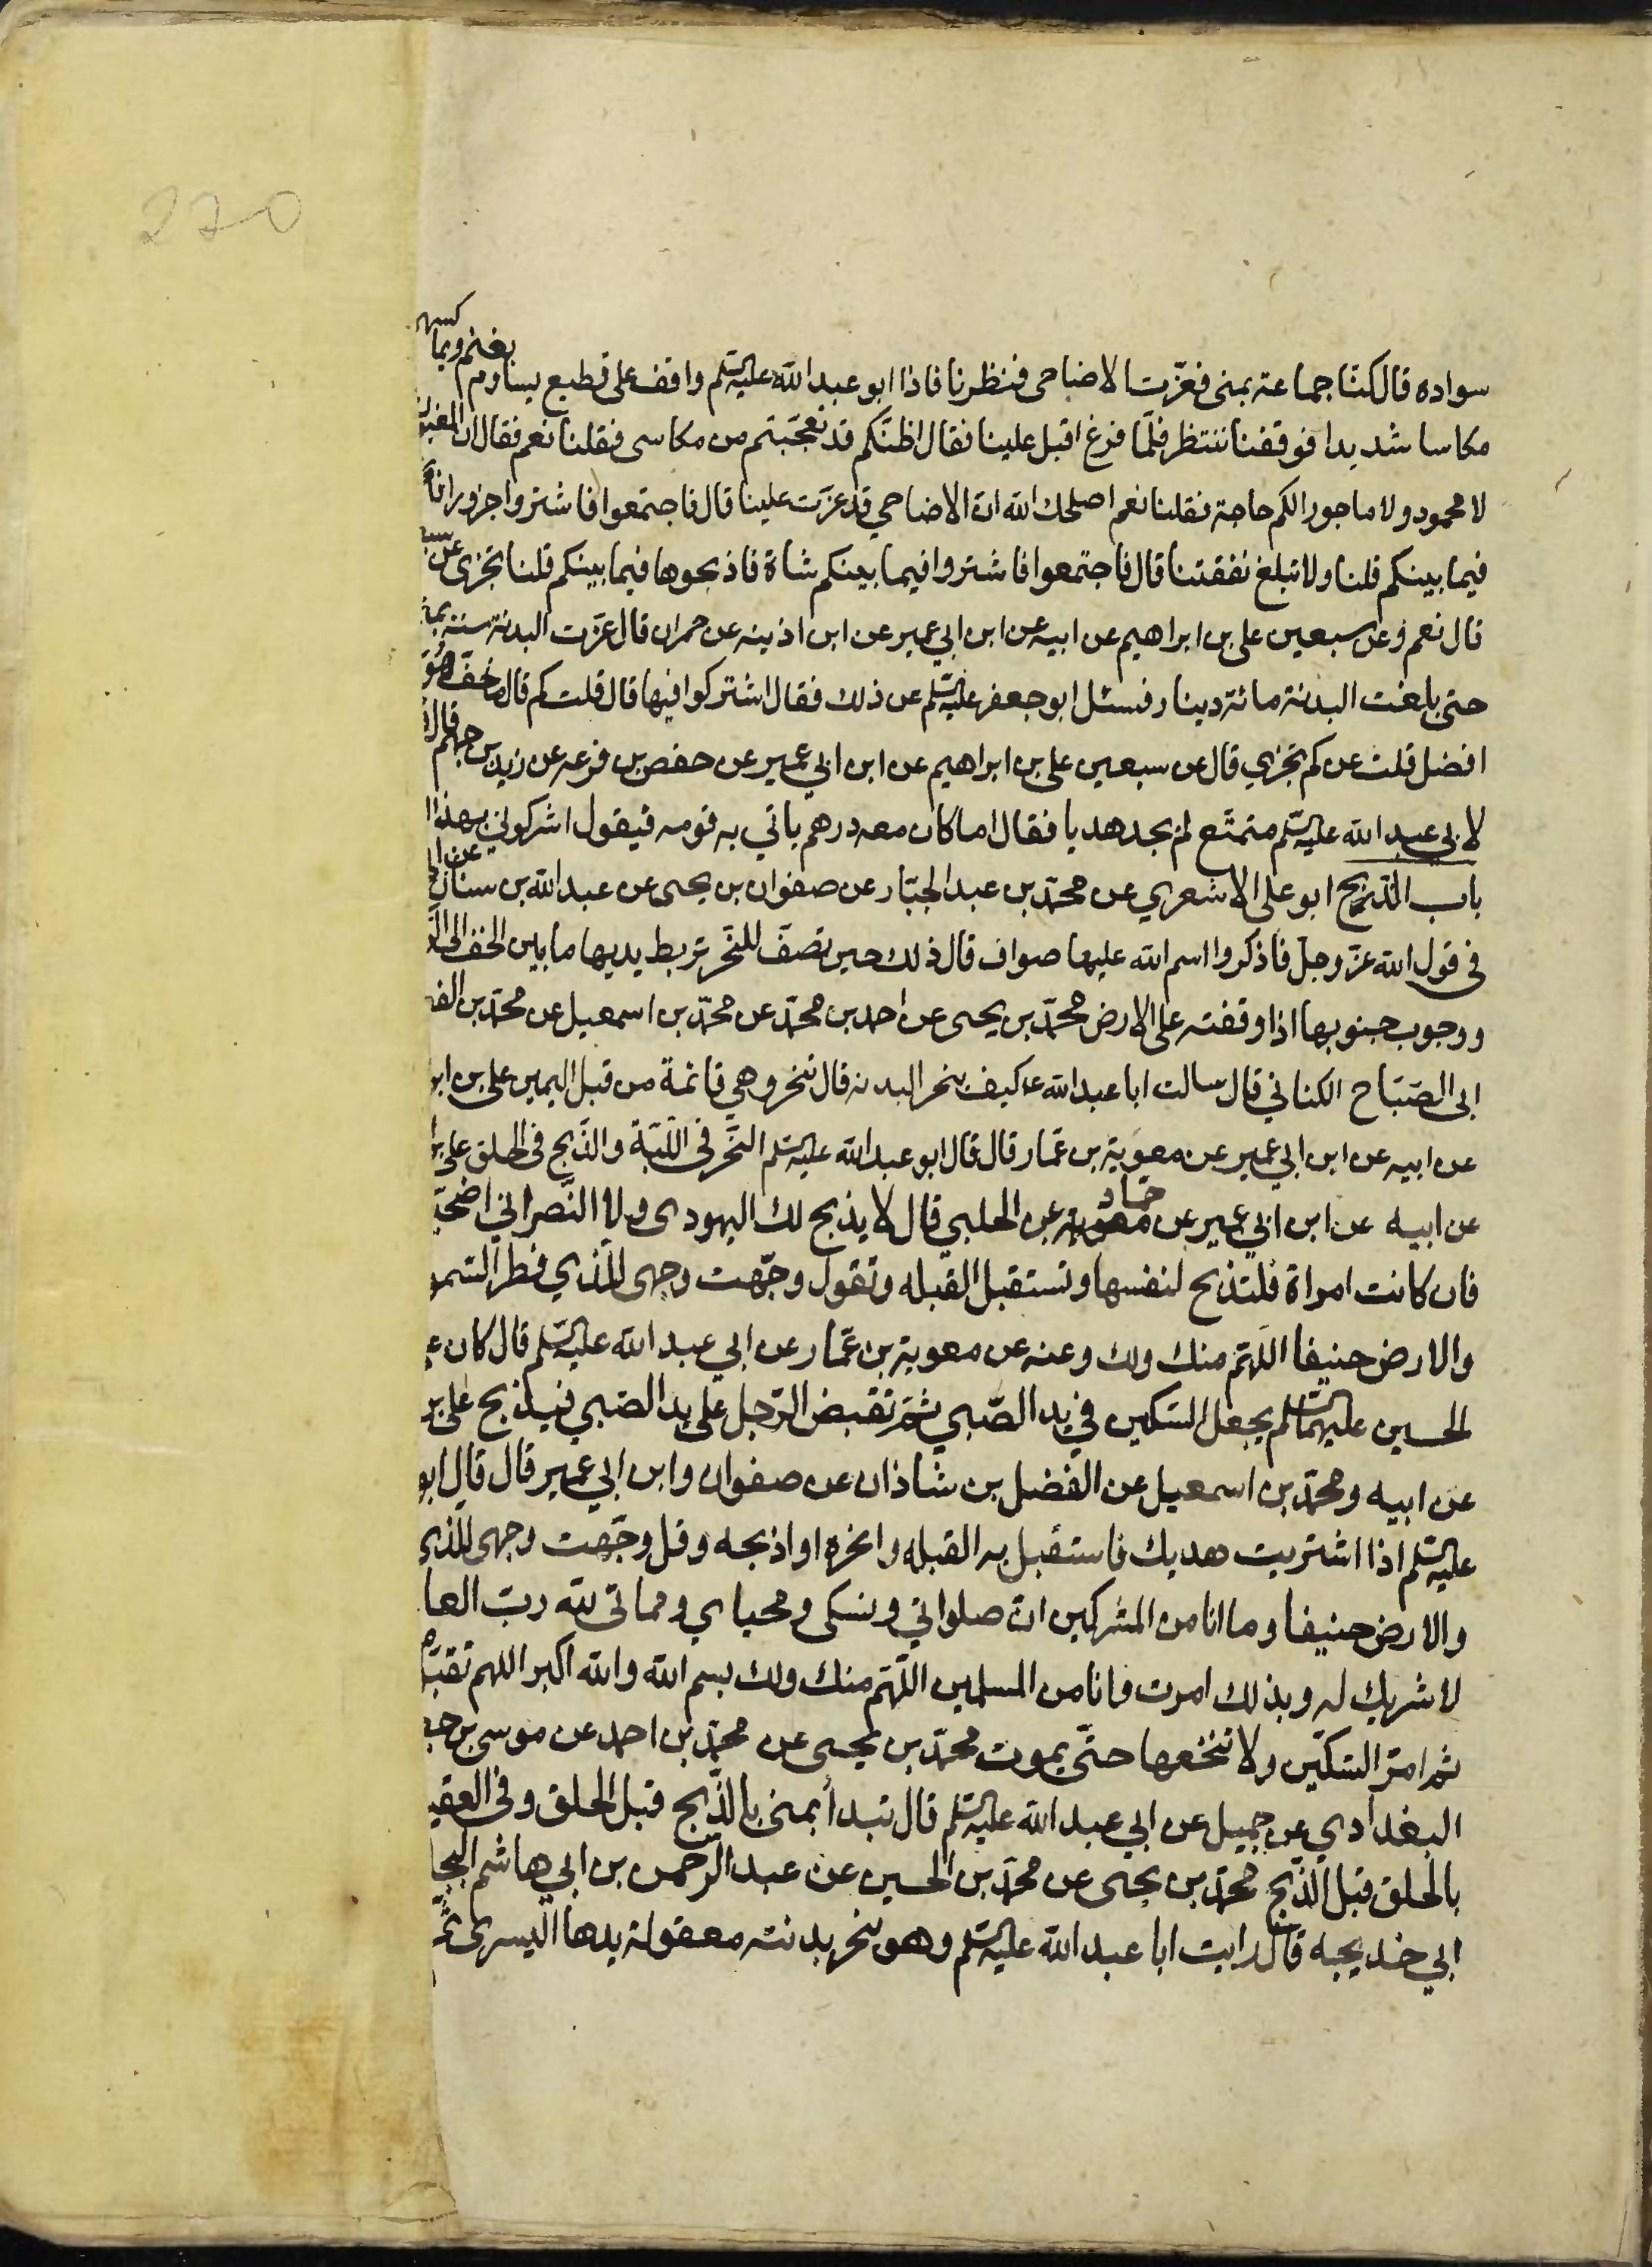 270
سواده قال كنّا جماعة بمنى فعزّت الاضاحى فنظرنا فاذا ابو عبد الله عليه السلم واقف على قطيع يساوم بغنم ويماكسهم
مكاسا شديدا فوقفنا ننتظر فلمّا فرغ اقبل علينا فقال اظنّكم قد تعجّبتم من مكاسى فقلنا نعم فقال ان المغبون
لا محمود ولا ماجور الكم حاجة فقلنا نعم اصلحك الله ان الاضاحي قد عزّت علينا قال فاجتمعوا فاشتروا جزورا
فيما بينكم قلنا ولا تبلغ نفقتنا قال فاجتمعوا فاشتروا فيما بينكم شاة فاذبحوها فيما بينكم قلنا تجزى عن
قال نعم وعن سبعين على بن ابراهيم عن ابيه عن ابن ابي عمير عن ابن اذينه عن حمران قال عزّت البدنة سنة
حتى بلغت البدنة مائة دينار فسئل ابو جعفر عليه السلم عن ذلك فقال اشتركوا فيها قال قلت كم قال ما خف هو
افضل قلت عن كم تجزي قال عن سبعين على بن ابراهيم عن ابن ابي عمير عن حفص بن قرعه عن زيد بن جهم قال
لابي عبد الله عليه السلم متمتّع لم يجد هديا فقال اما كان معه درهم ياتي به قومه فيقول اشركوني بهذا
باب الذبح ابو على الاشعري عن محمّد بن عبد الجبّار عن صفوان بن يحيى عن عبد الله بن سنان
في قول الله عزّ وجلّ فاذكروا اسم الله عليها صواف قال ذلك حين تصفّ للنّحر تربط يديها ما بين الخف الى
ووجوب جنوبها اذا وقفته على الارض محمّد بن يحيى عن احمد بن محمّد عن محمّد بن اسمعيل عن محمّد بن
ابى الصّبّاح الكناني قال سالت ابا عبد الله ع كيف ينحر البدنه قال تنحر وهي قائمة من قبل اليمين على بن
عن ابيه عن ابن ابي عمير عن معوية بن عمّار قال قال ابو عبد الله عليه السلم النّحر في اللّبّة والذّبح في الحلق على
عن ابيه عن ابن ابي عمير عن معوية حماد عن الحلبي قال لا يذبح لك اليهودى ولا النّصراني
فان كانت امراة فلتذبح لنفسها وتستقبل القبله وتقول وجّهت وجهى للّذي فطر
والارض حنيفا اللّهمّ منك ولك وعنه عن معوية بن عمّار عن ابي عبد الله عليه السلم قال كان
الحسين عليهما السلم يجعل السّكين في يد الصّبي ثمّ تقبض الرّجل على يد الصّبي فيذبح على
عن ابيه ومحمّد بن اسمعيل عن الفضل بن شاذان عن صفوان وابن ابي عمير قال قال ابو
عليه السلم اذا اشتريت هديك فاستقبل به القبله وانحره او اذبحه وقل وجّهت وجهى للّذي
والارض حنيفا وما انا من المشركين انّ صلواتي ونسكى ومحياي ومماتى لله ربّ
لا شريك له وبذلك امرت وانا من المسلمين اللّهمّ منك ولك بسم الله والله اكبر اللهم
ثم امرّ السّكّين ولا تنخعها حتّى يموت محمّد بن يحيى عن محمّد بن احمد عن موسى بن
البغدادي عن جميل عن ابي عبد الله عليه السلم قال تبدأ بمنى بالذّبح قبل الحلق وفي
بالحلق قبل الذّبح محمّد بن يحيى عن محمّد بن الحسين عن عبد الرّحمن بن ابي هاشم
ابي خديجه قال رايت ابا عبد الله عليه السلم وهو ينحر بدنته معقولة يدها اليسرى